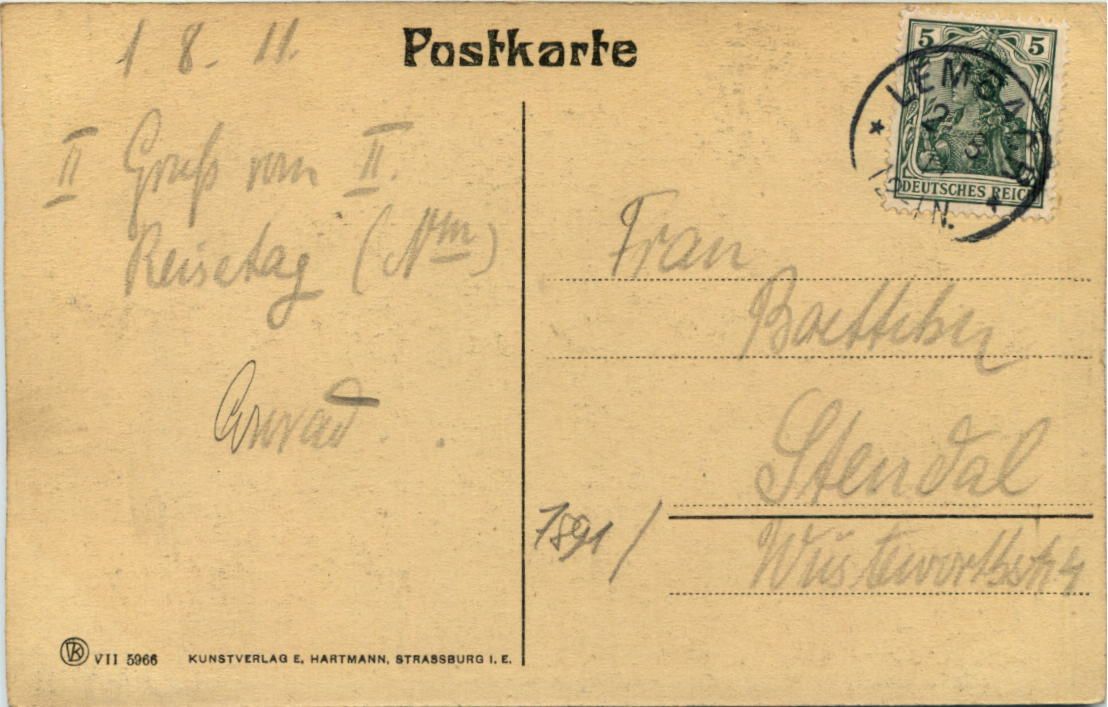 Postkarte
1 8. 11.
II Gruß vom II.
Reisetag (Nm)
Conrad.
5 5
DEUTSCHES REICH
LEMBACH
2 8
11
12-1N.
Frau
Boettcher
Stendal
Wüsteworthstr 4
7891/
VII 5966 KUNSTVERLAG E. HARTMANN, STRASSBURG I. E.